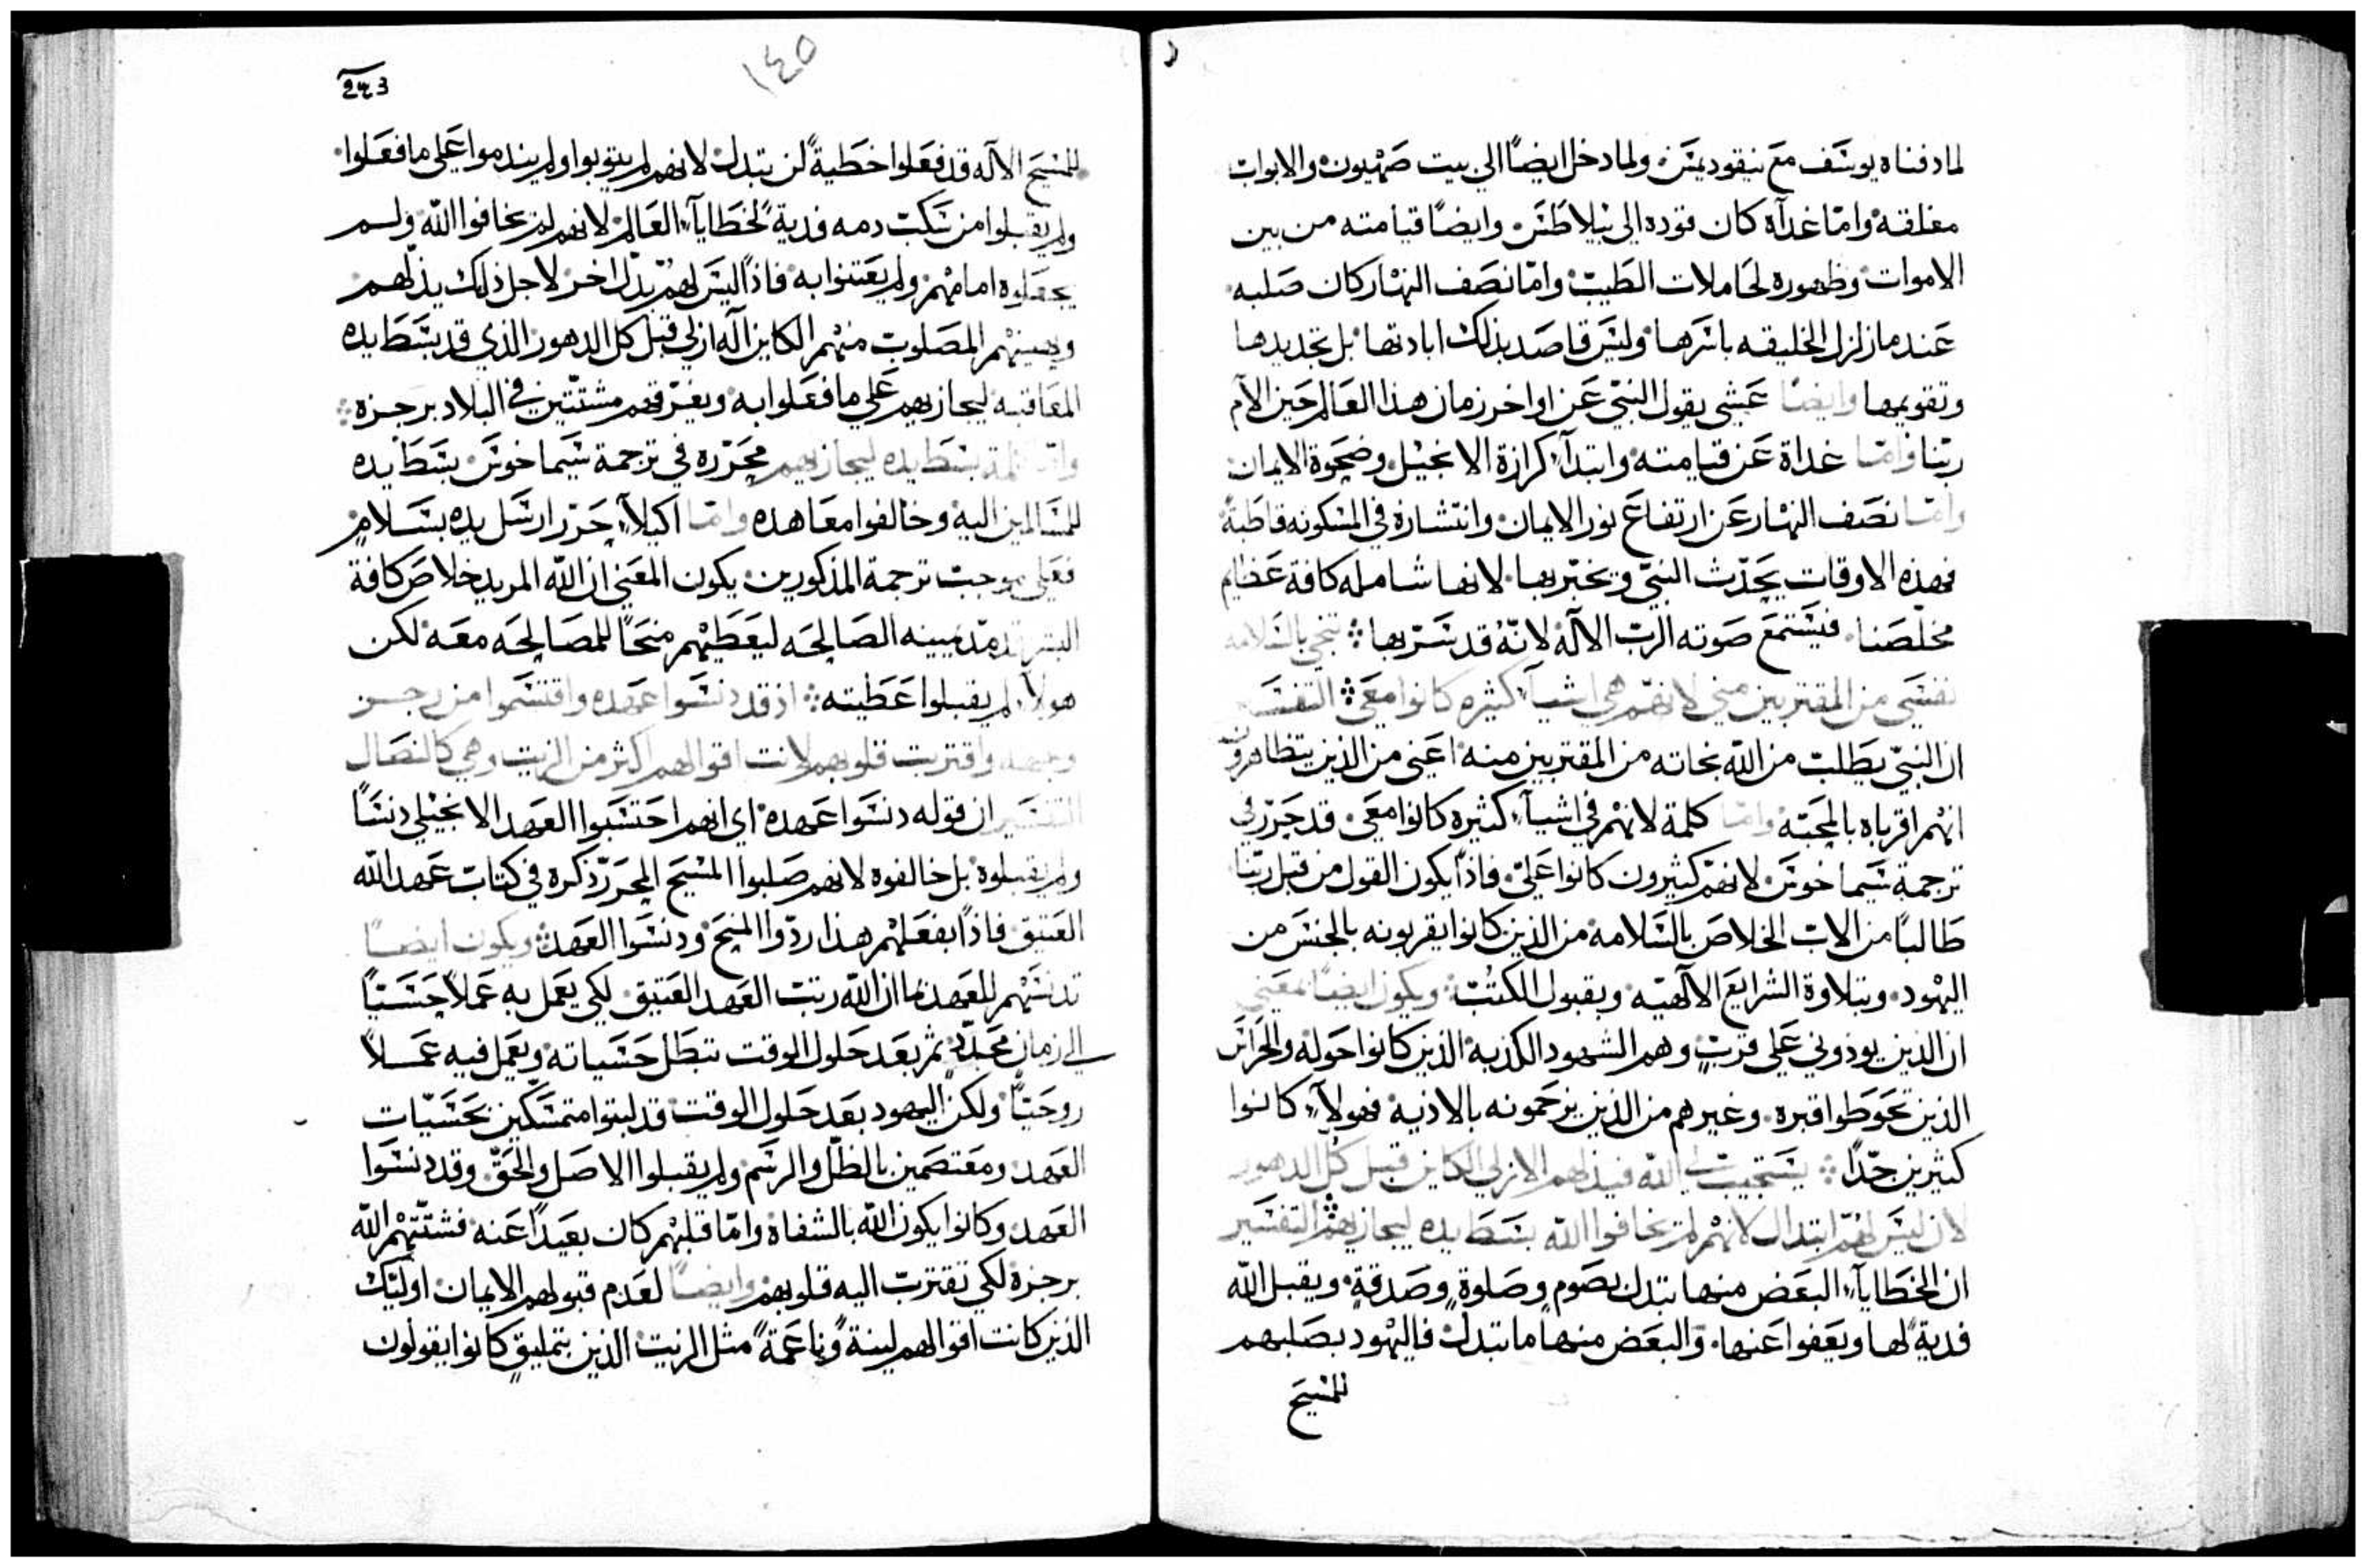 لما دفناه يوسف مع نيقوديمس. ولما دخل ايضًا الي بيت صهيون والابواب
مغلقة واما غداه كان قوده الي بيلاطس. وايضًا قيامته من بين
الاموات وظهوره لحاملات الطيب وامّا نصف النهار كان صلبه
عندما زلزل الخليقه باسرها وليس قاصد بذلك ابادتها بل تجديدها
وتقويمها وايضًا عشي يقول النبي عن اواخر زمان هذا العالم حين الام
ربنا وامّا غداة عن قيامته وابتدآء كرازة الانجيل وضحوة الايمان
وامّا نصف النهار عن ارتفاع نور الايمان وانتشاره في المسكونه قاطبةً
فهذه الاوقات يحدّث النبيّ ويخبّر بها. لانها شامله كافة عظايم
مخلصنا. فيستمع صوته الربّ الاله لانّهُ قد سرّ بها تنجي بالسلامه
نفسي من المقتربين مني لانهم في اشيآء كثيره كانوا معي التفسير
ان النبيّ يطلب من الله نجاته من المقتربين منه اعني من الذين يتظاهرون
انهم اقرباه بالمحبّه وامّا كلمة لانهم في اشيآء كثيره كانوا معي. قد حرّر في
ترجمة سيماخوس لانهم كثيرون كانوا عليّ. فاذًا يكون القول من قبل ربّنا
طالبًا من الاب الخلاص بالسلامه من الذين كانوا يقربونه بالجنس من
اليهود. وبتلاوة الشرايع الآلهيّه وبقبول الكتب ويكون ايضًا بمعني
ان الذين يوذوني علي قربٍ وهم الشهود الكذبه الذين كانوا حوله والحراس
الذين تحوطوا قبره. وغيرهم من الذين يزحمونه بالاذيه فهولآء كانوا
كثيرين جدًّا يستجيب لي الله فيذلهم الازلي الكاين قبل كل الدهور
لان ليس لهم ابتدال لانهم لم يخافوا الله بسط يده ليجازيهم التفسير
ان الخطايآء البعض منها تبدل بصومٍ وصلوةٍ وصدقةٍ ويقبل الله
فديةً لها ويعفوا عنها. والبعض منها ما تبدل فاليهود بصلبهم
للمسيح
243
١٤٥
للمسيح الآله قد فعلوا خطيةً لن تبدل لانهم لم يتوبوا ولم يندموا علي ما فعلوا
ولم يقبلوا من سكب دمه فديةً لخطايآء العالم لانهم لم يخافوا الله ولم
يجعلوه امامهم ولم يعتنوا به فاذًا ليس لهم بدل اخر لاجل ذلك يذلّهم
ويهينهم المصلوب منهم الكاين آله ازلي قبل كل الدهور الذي قد بسط يده
المعاقبه ليجازيهم علي ما فعلوا به ويفرّقهم مشتّتين في البلاد برجزه
وامّا كلمة بسط يده ليجازيهم محرّره في ترجمة سيماخوس بسط يده
للمسالمين اليه وخالفوا معاهده وامّا اكيلآ حرّر ارسل يده بسلامٍ
فعلي موجب ترجمة المذكورين يكون المعني ان الله المريد خلاص كافة
البشر قد مدّ يمينه الصالحه ليعطيهم منحًا للمصالحه معه لكن
هولآء لم يقبلوا عطيته اذ قد دنسوا عهده واقتسموا من رجز
وجهه واقتربت قلوبهم لانت اقوالهم اكثر من الزيت وهي كالنصال
التفسير ان قوله دنسوا عهده اي انهم احتسبوا العهد الانجيلي دنسًا
ولم يقبلوه بل خالفوه لانهم صلبوا المسيح المحرّر ذكره في كتاب عهد الله
العتيق فاذًا بفعلهم هذا ردّوا المنح ودنسوا العهد ويكون ايضًا
تدنسهم للعهد ما ان الله رتب العهد العتيق لكي يعمل به عملاً حسيًّا
الي زمان محدّد ثم بعد حلول الوقت تبطل حسياته ويعمل فيه عملاً
روحيًّا ولكن اليهود بعد حلول الوقت قد لبثوا متمسّكين بحسيّات
العهد ومعتصمين بالظلّ والرسم ولم يقبلوا الاصل والحقّ وقد دنسوا
العهد وكانوا يكون الله بالشفاه وامّا قلبهم كان بعيدًا عنه فشتّتهم الله
برجزه لكي تقترب اليه قلوبهم وايضًا لعدم قبولهم الايمان اوليك
الذين كانت اقوالهم لينةً وناعمةً مثل الزيت الذين بتمليقٍ كانوا يقولون